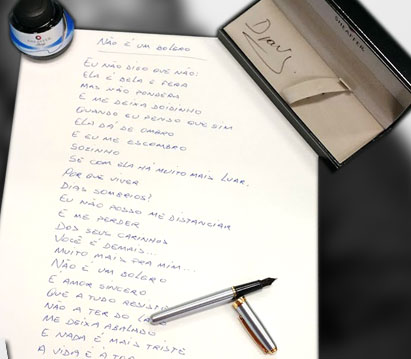 NÃO É UM BOLERO
EU NÃO DIGO QUE NÃO!
ELA É BELA E FERA
MAS NÃO PONDERA
E ME DEIXA DOIDINHO
QUANDO EU PENSO QUE SIM
ELA DÁ DE OMBRO
E EU ME ESCOMBRO
SOZINHO
SE COM ELA HÁ MUITO MAIS LUAR,
POR QUE VIVER
DIAS SOMBRIOS?
EU NÃO POSSO ME DISTANCIAR
E ME PERDER
DOS SEUS CARINHOS
VOCÊ É DEMAIS...
MUITO MAIS PRA MIM...
NÃO É UM BOLERO
É AMOR SINCERO
QUE A TUDO
NÃO A TER DO
ME DEIXA ABALADO
E NADA É MAIS TRISTE
A VIDA É
SHEAFFER